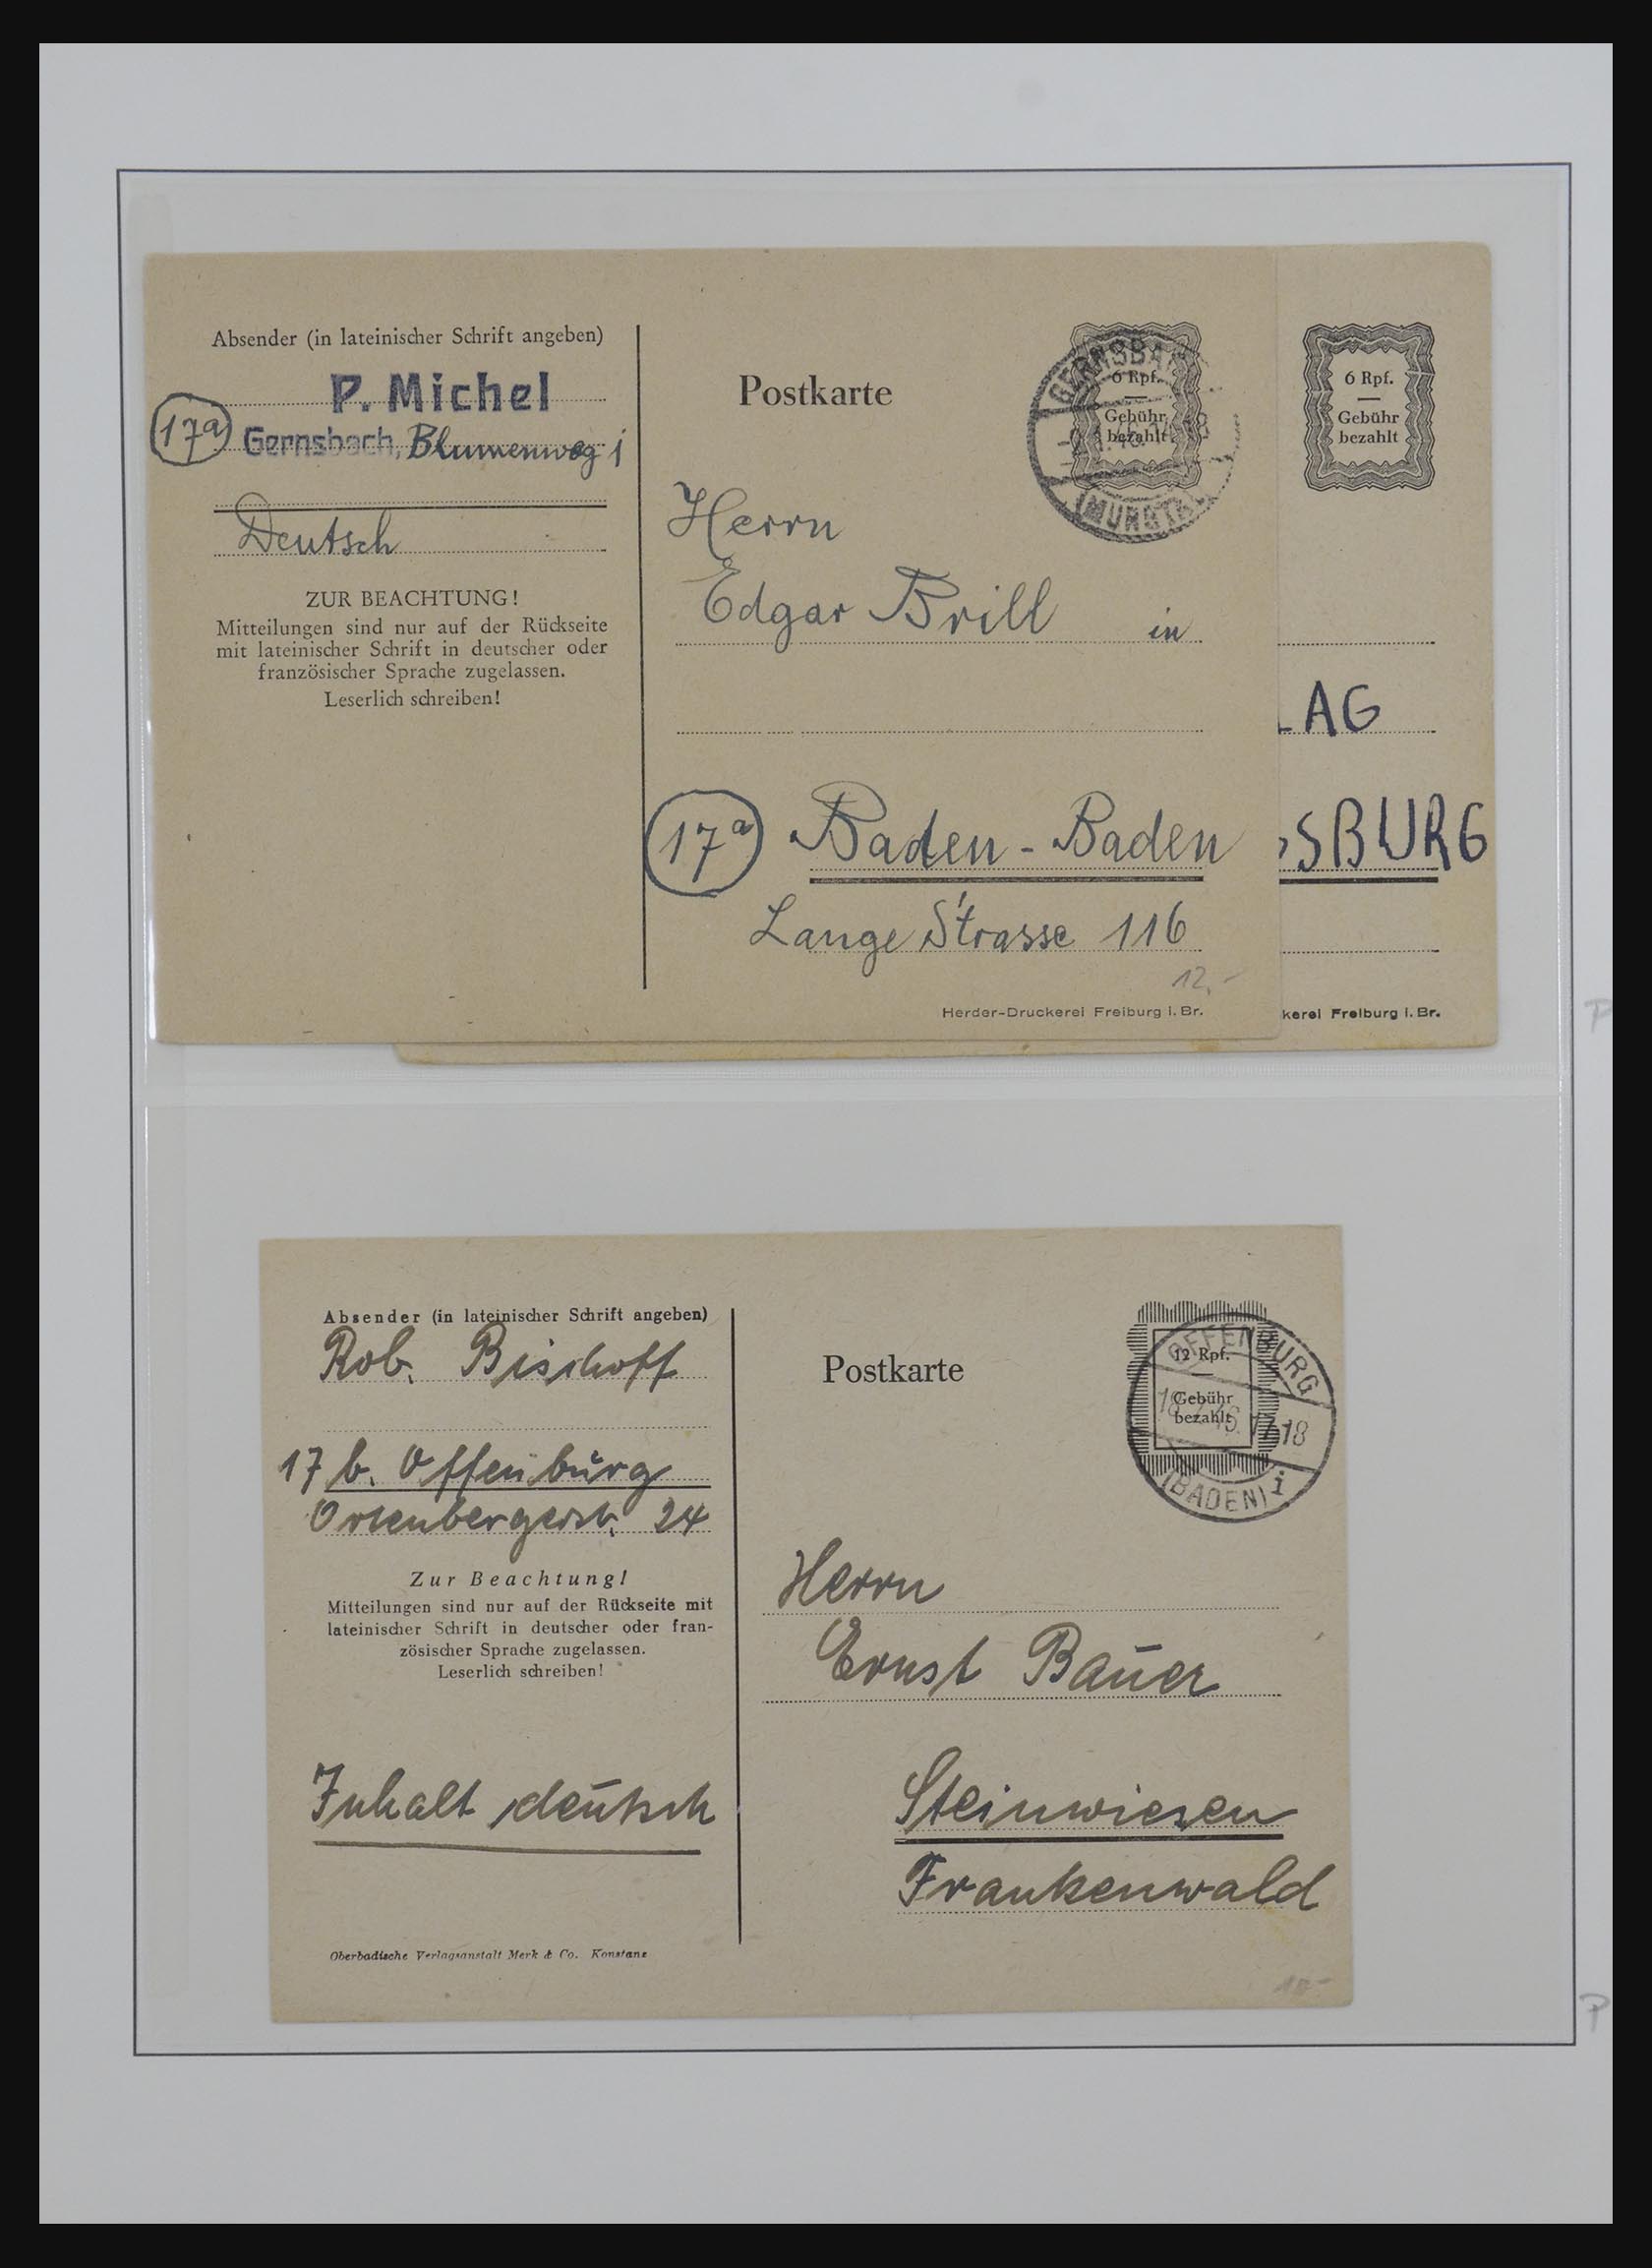 Absender (in lateinischer Schrift angeben)
P. Michel
17a Gernsbach, Blumenweg 1
Deutsch
ZUR BEACHTUNG!
Mitteilungen sind nur auf der Rückseite
mit lateinischer Schrift in deutscher oder
französischer Sprache zugelassen.
Leserlich schreiben!
Postkarte
6 Rpf.
Gebühr
bezahlt
GERNSBACH
(MURGTAL)
Herrn
Edgar Brill in
17a Baden-Baden
Lange Strasse 116
12,-
Herder-Druckerei Freiburg i. Br.
6 Rpf.
Gebühr
bezahlt
LAG
SBURG
kerei Freiburg i. Br.
P
Absender (in lateinischer Schrift angeben)
Rob. Bischoff
17 b. Offenburg
Ortenbergerstr. 24
Zur Beachtung!
Mitteilungen sind nur auf der Rückseite mit
lateinischer Schrift in deutscher oder fran-
zösischer Sprache zugelassen.
Leserlich schreiben!
Inhalt deutsch
Oberbadische Verlagsanstalt Merk & Co. Konstanz
Postkarte
12 Rpf.
Gebühr
bezahlt
OFFENBURG
17-18
(BADEN) i
Herrn
Ernst Bauer
Steinwiesen
Frankenwald
10-
P